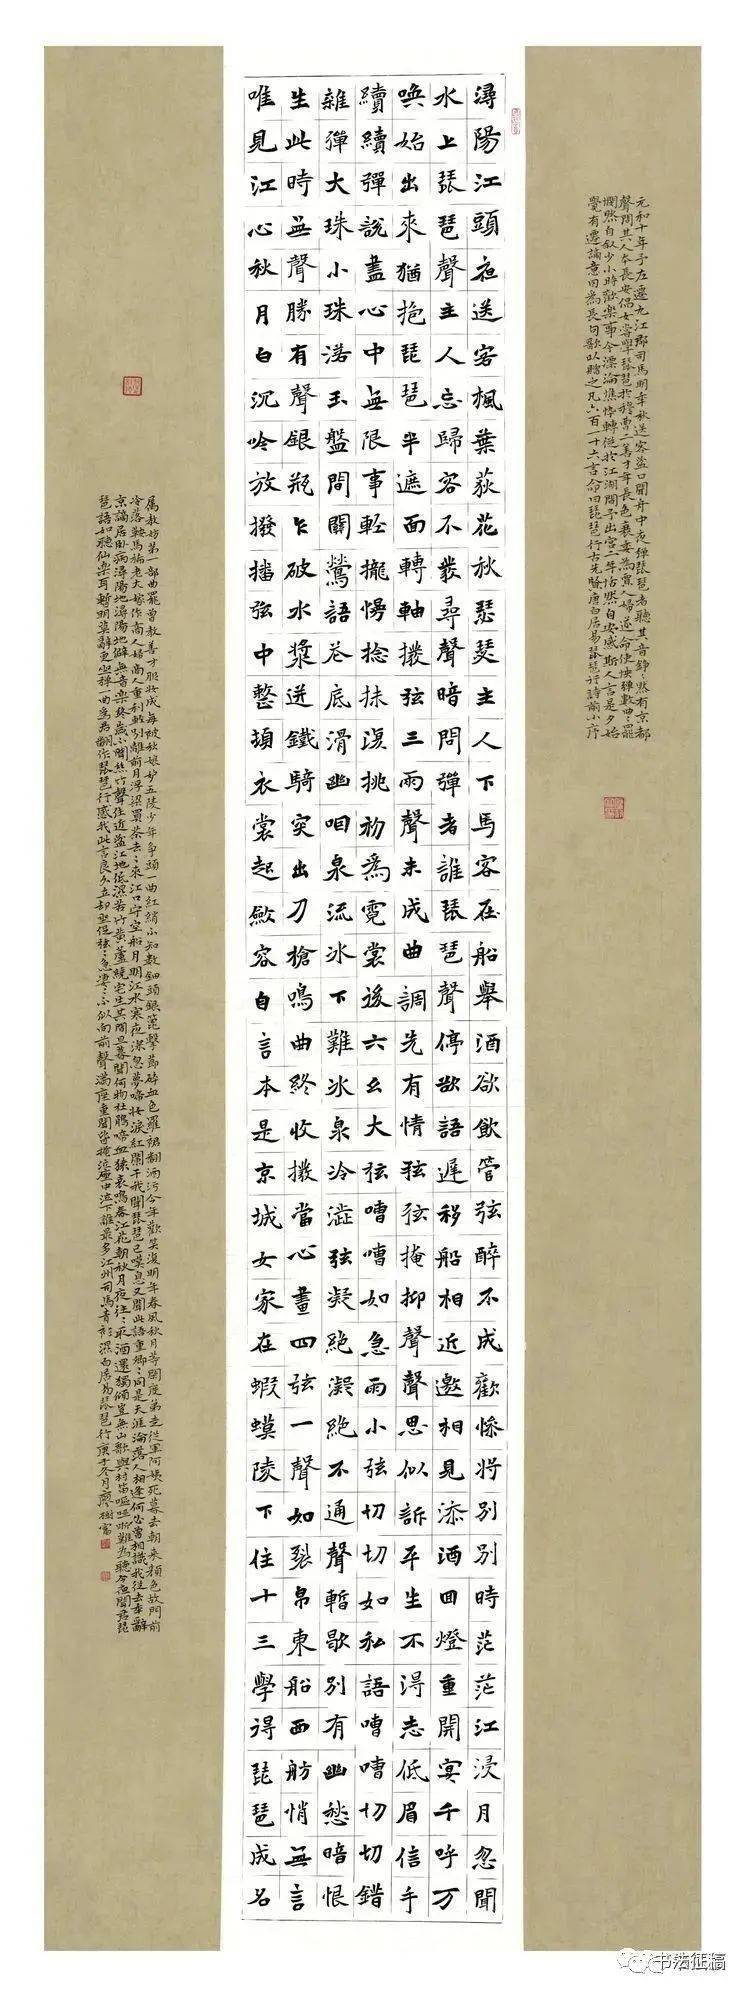 元和十年予左遷九江郡司馬明年秋送客湓口聞舟中夜弹琵琶者聽其音錚〻然有京都
聲問其人本長安倡女嘗學琵琶於穆曹二善才年長色衰委為賈人婦遂命使快弹數曲〻罷
憫然自叙少小時歡樂事今漂淪憔悴轉徙於江湖間予出官二年恬然自安感斯人言是夕始
覺有遷謫意因為長句歌以贈之凡六百一十六言命曰琵琶行古先賢唐白居易琵琶行詩前小序
潯陽江頭夜送客楓葉荻花秋瑟瑟主人下馬客在船舉酒欲飲管弦醉不成歡慘將別別時茫茫江浸月忽聞
水上琵琶聲主人忘歸客不發尋聲暗問彈者誰琵琶聲停欲語遲移船相近邀相見添酒回燈重開宴千呼万
唤始出來猶抱琵琶半遮面轉軸撥弦三兩聲未成曲調先有情弦弦掩抑聲聲思似訴平生不得志低眉信手
續續彈說盡心中無限事輕攏慢捻抹復挑初為霓裳後六幺大弦嘈嘈如急雨小弦切切如私語嘈嘈切切錯
雜彈大珠小珠落玉盤間關鶯語花底滑幽咽泉流冰下難冰泉冷澀弦凝絕凝絕不通聲暫歇別有幽愁暗恨
生此時無聲勝有聲銀瓶乍破水漿迸鐵騎突出刀槍鳴曲終收撥當心畫四弦一聲如裂帛東船西舫悄無言
唯見江心秋月白沉吟放撥插弦中整頓衣裳起斂容自言本是京城女家在蝦蟆陵下住十三學得琵琶成名
屬教坊第一部曲罷曾教善才服妝成每被秋娘妒五陵少年爭頭一曲紅綃不知數鈿頭銀篦擊節碎血色羅裙翻酒污今年歡笑復明年春風秋月等閑度弟走從軍阿姨死暮去朝來顏色故門前
冷落鞍馬稀老大嫁作商人婦商人重利輕別離前月浮梁買茶去〻來江口守空船月明江水寒夜深忽夢啼妝淚紅闌干我聞琵琶已嘆息又聞此語重唧〻同是天涯淪落人相逢何必曾相識我從去年辭
京謫居卧病潯陽地潯陽地僻無音樂終歲不聞絲竹聲住近湓江地低濕苦竹黃蘆繞宅生其間旦暮聞何物杜鵑啼血猿哀鳴春江花朝秋月夜往〻取酒還獨傾豈無山歌與村笛嘔啞嘲難為聽今夜聞君琵
琶語如聽仙樂耳暫明莫辭更坐彈一曲為君翻作琵琶行感我此言良久立却坐促弦〻急凄〻不似向前聲滿座重聞皆掩泣座中泣下誰最多江州司馬青衫濕白居易琵琶行庚子冬月廖樹富
书法征稿